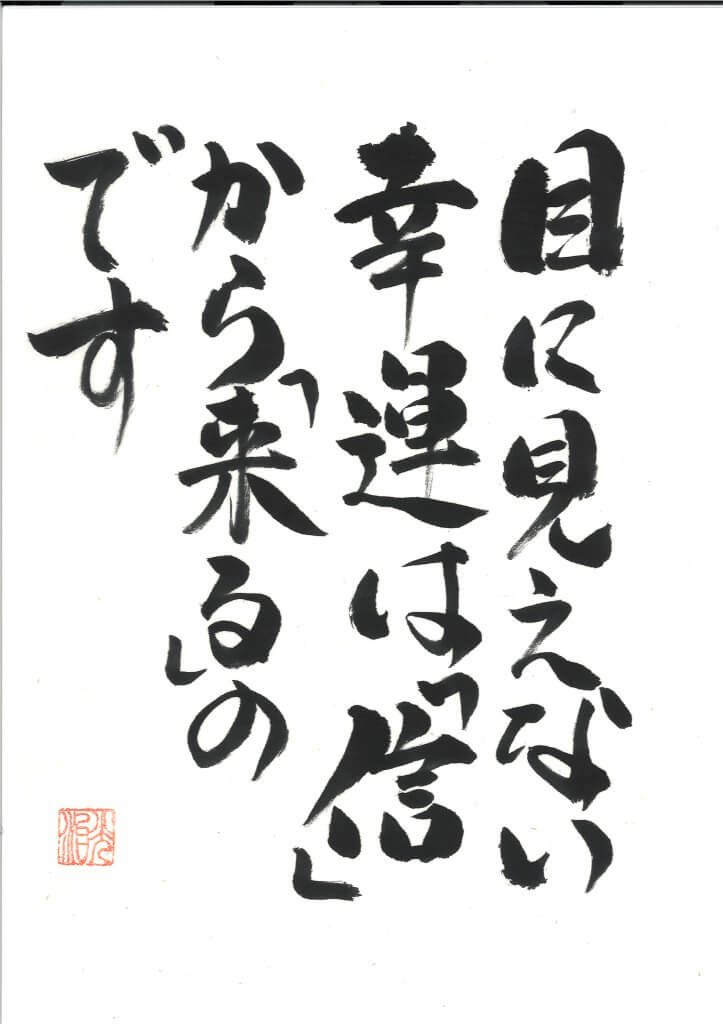 目に見えない
幸運は「信」
から「来る」の
です